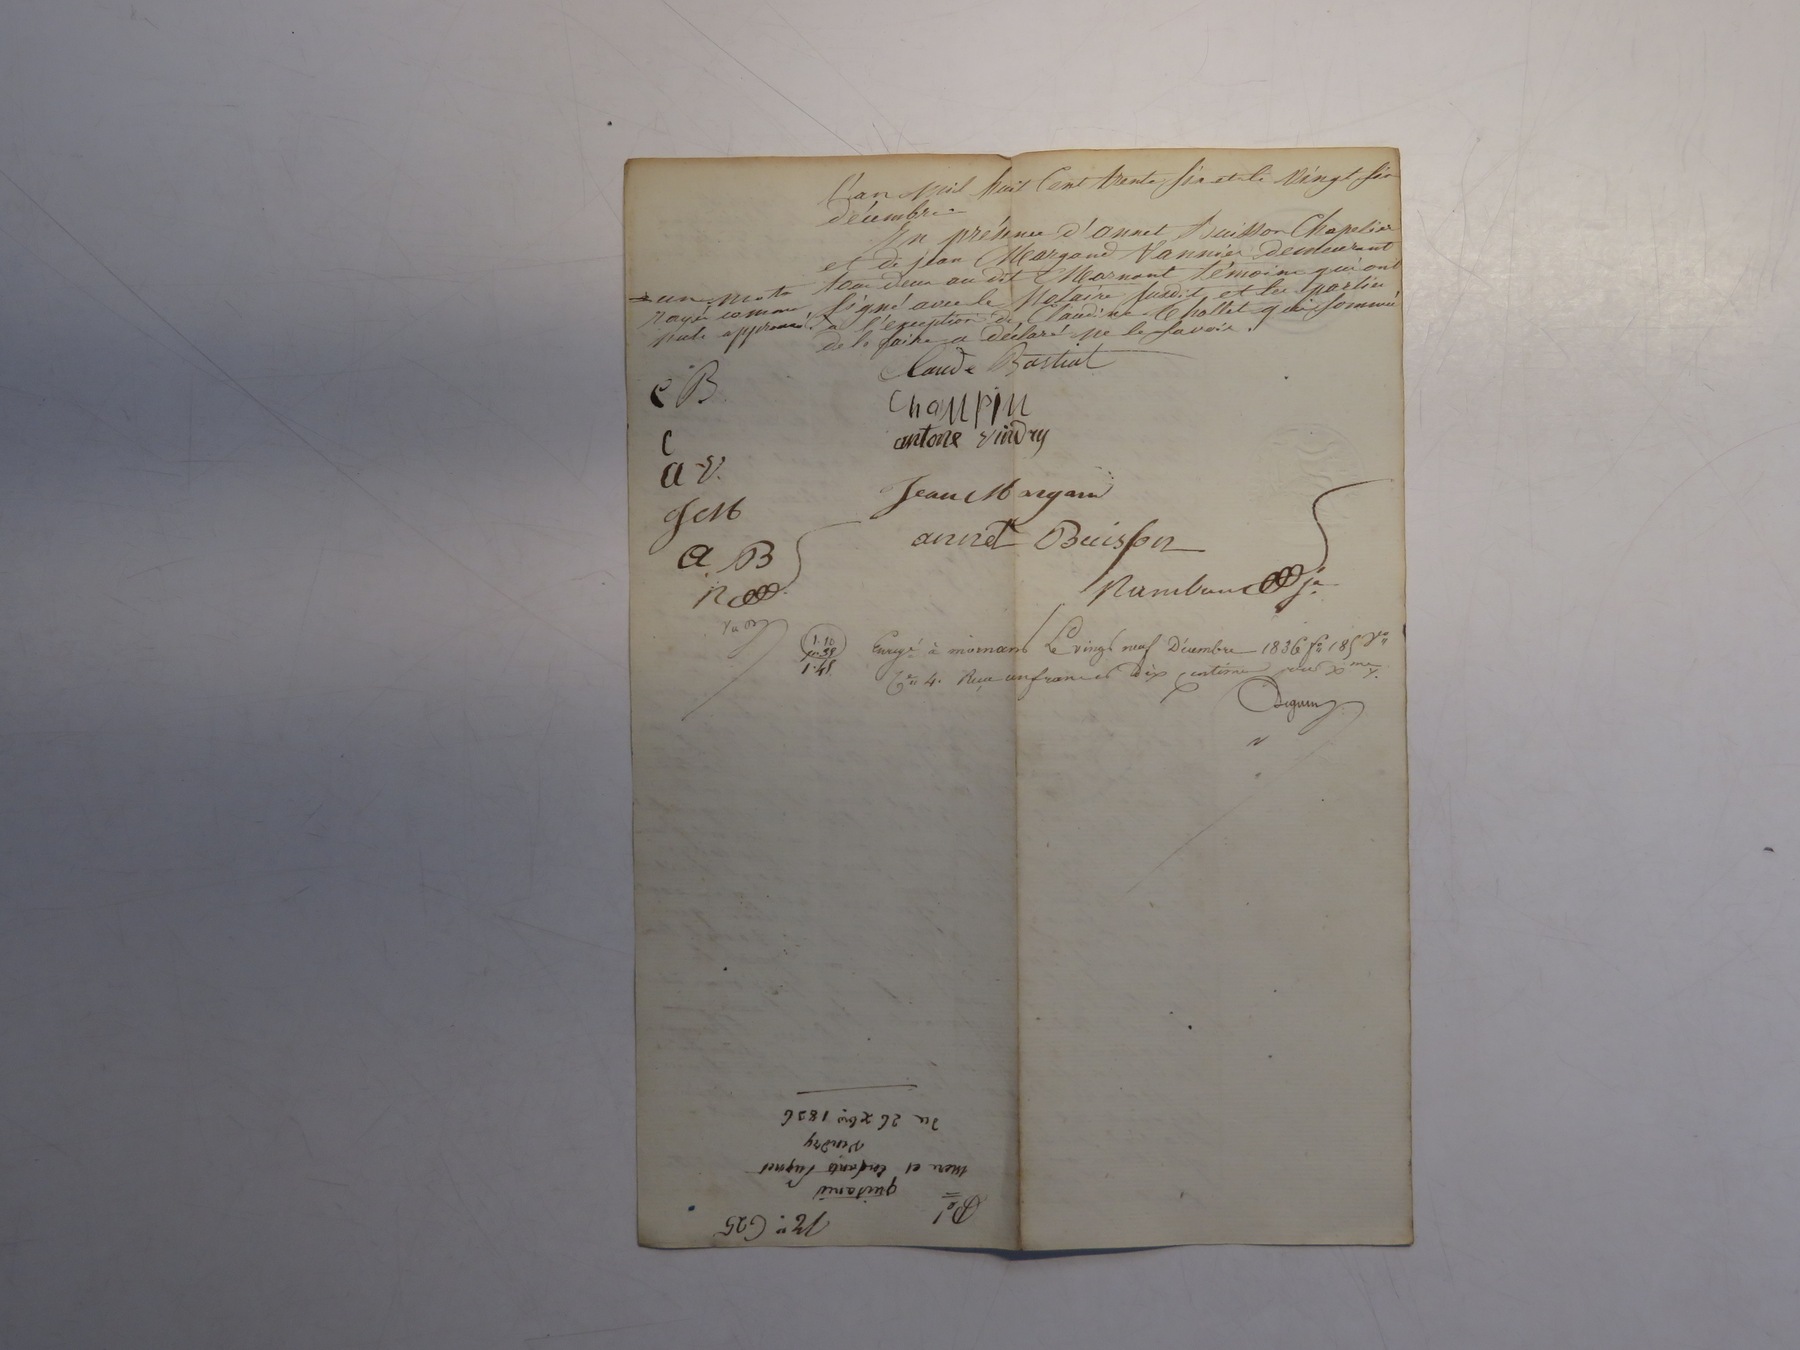 L'an Mil huit Cent trente six et le Vingt six
décembre
En présence d'annet Buisson Chapelier
et de jean Margand Vannier demeurant
tous deux au dit Mornant témoins qui ont
signé avec le Notaire susdit et les parties
à l'exception de Claudine Chollet qui sommée
de le faire a déclaré ne le savoir.
un mots
rayé comme
nuls approuvé
Claude Bastiat
C B
Champin
C
antone vindry
a. V.
Jean Margand
J M
annet Buisson
a. B
R
Enregé à mornant Le vingt neuf Décembre 1836 fo 185 Vo
1.10
1.
Ceu 4. Reçu un franc dix centimes pour Xme
No. 625
Pal
quitance
mere et Enfants
Vindry
du 26 xbre 1836